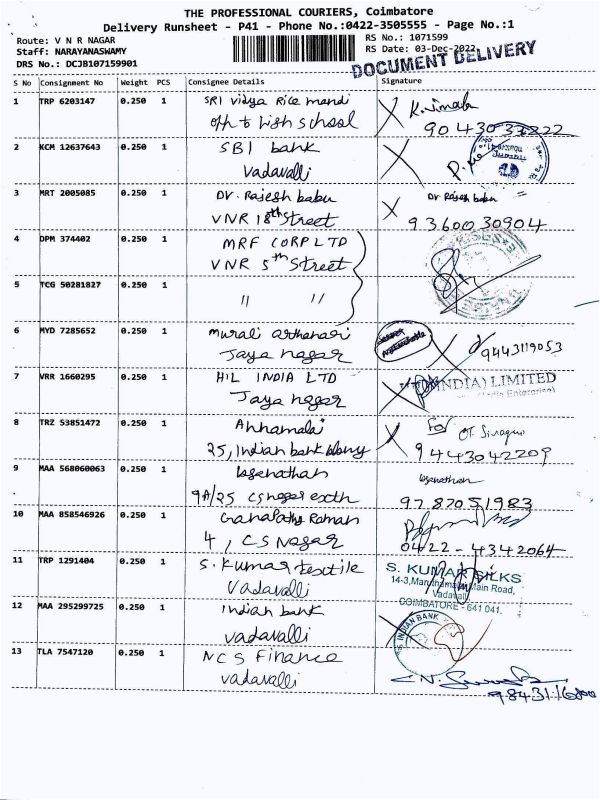 THE PROFESSIONAL COURIERS, Coimbatore
Delivery Runsheet - P41 - Phone No.:0422-3505555 - Page No.:1
Route: V N R NAGAR
RS No.: 1071599
Staff: NARAYANASWAMY
RS Date: 03-Dec-2022
DRS No.: DCJB107159901
DOCUMENT DELIVERY
S No Consignment No Weight PCS Consignee Details Signature
1 TRP 6203147 0.250 1 SRI Vidya Rice mandi
opp to high school
2 KCM 12637643 0.250 1 SBI bank
Vadavalli
3 MRT 2005085 0.250 1 Dr. Rajesh babu Dr Rajesh babu
VNR 18th Street 9360030904
4 DPM 374402 0.250 1 MRF CORP LTD
VNR 5th Street
5 TCG 50281827 0.250 1
" "
6 MYD 7285652 0.250 1 Murali
Jaya nagar 9443119053
7 VRR 1660295 0.250 1 HIL INDIA LTD
(INDIA) LIMITED
Jaya nagar
8 TRZ 53851472 0.250 1 Annamalai For
25, Indian bank colony 9443042209
9 MAA 568060063 0.250 1 Loganathan Loganathan
9A/25 CS nagar extn 9787051983
10 MAA 858546926 0.250 1 Ganapathy Raman
4, CS Nagar 0422-4342064
11 TRP 1291404 0.250 1 S. Kumar textile
Vadavalli
S. KUMAR SILKS
14-3, Main Road,
Vadavalli
COIMBATORE - 641 041.
12 MAA 295299725 0.250 1 Indian bank
Vadavalli
INDIAN BANK
13 TLA 7547120 0.250 1 NCS Finance
Vadavalli